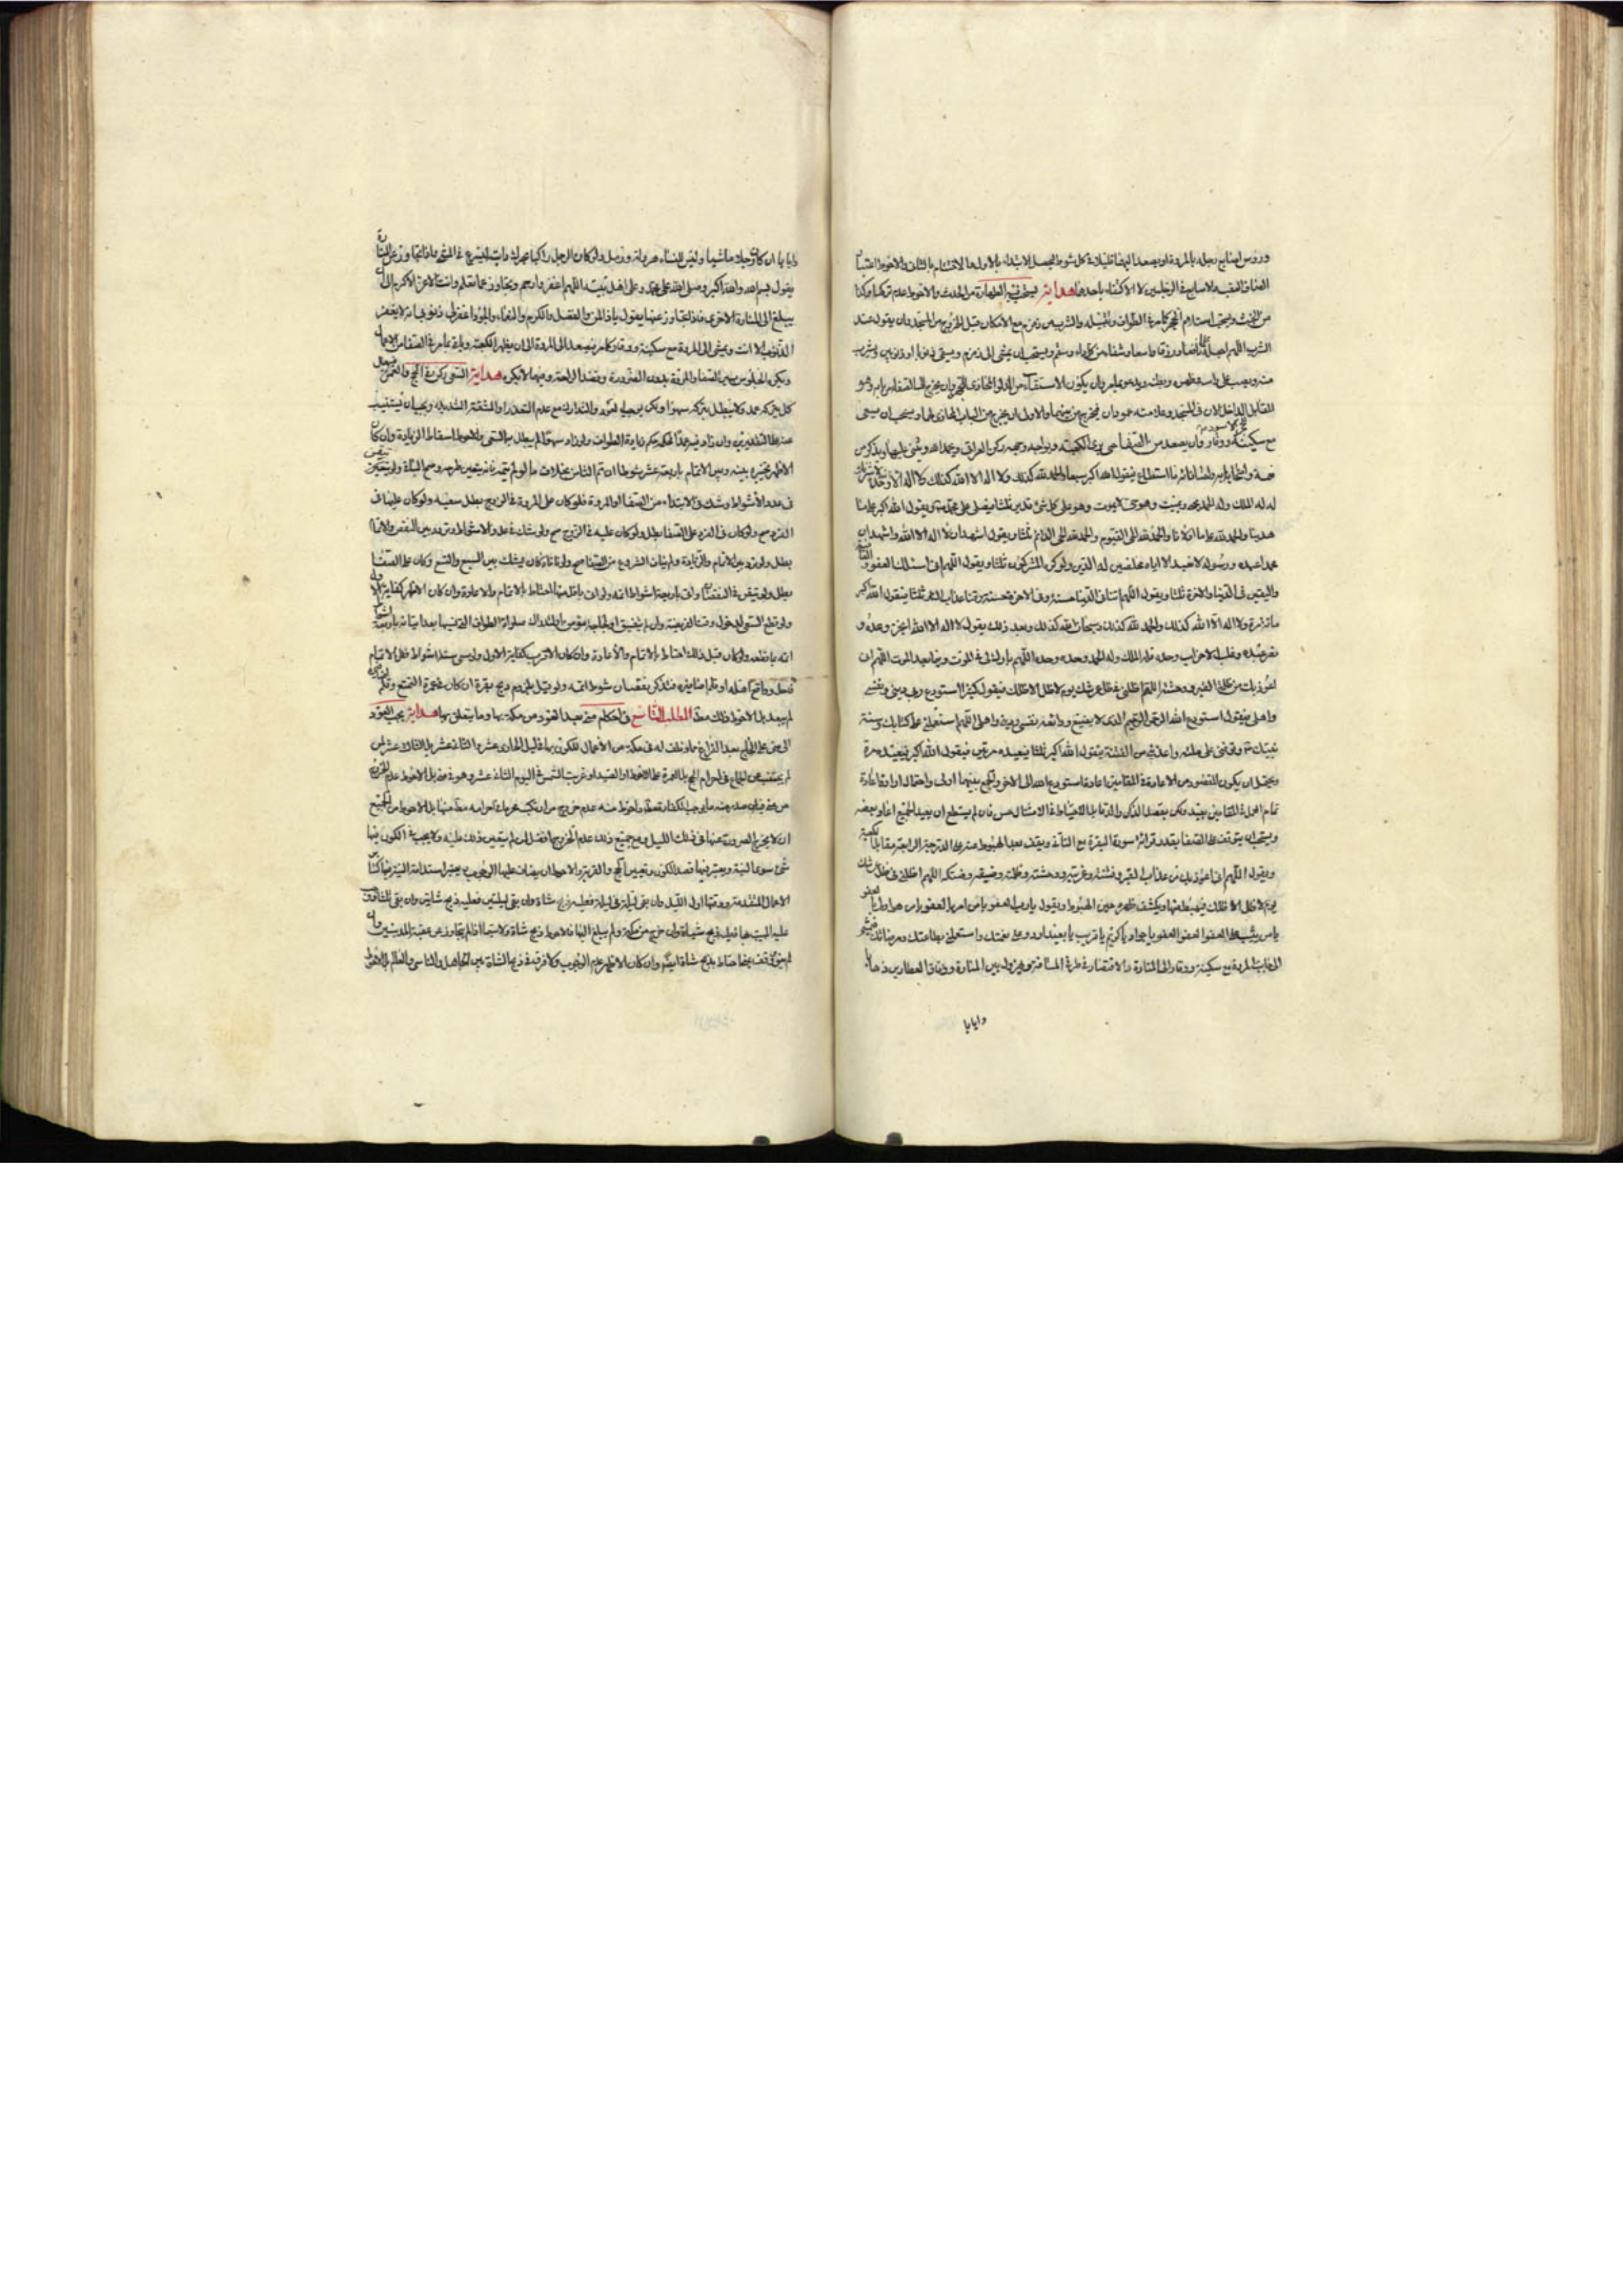 ورؤس اصابع رجله بالمروة او يصعد اليهما قليلا في كل شوط ليحصل الابتداء بالاول والاختتام بالثاني والاحوط
العقب والاصابع في الرجلين لا الاكتفاء باحدهما هداية يستحب فيه الطهارة من الحدث والاحوط عدم تركها وكذا
من الخبث ويستحب استلام الحجر كما مر في الطواف وتقبيله والشرب من زمزم مع الامكان قبل الخروج من المسجد وان يقول عند
الشرب اللهم اجعله علما نافعا ورزقا واسعا وشفاء من كل داء وسقم ويستحب ان يمشي الى زمزم ويستقي ذنوبا او ذنوبين ويشرب
منه ويصب على راسه وظهره وبطنه ويدعو بما مر وان يكون الاستقاء من الدلو المحاذي للحجر وان يخرج الى الصفا من باب وهو
المقابل الداخل الان في المسجد وعلامته عمودان فيخرج من بينهما والاولى ان يخرج من الباب المحاذي لهما ويستحب ان يمشي
مع سكينة ووقار وان يصعد من الصفا حتى يرى الكعبة ويواجه وجهه ركن العراقي ويحمد الله ويثني عليه ويذكر من
نعمه ما استطاع فيقول الله اكبر سبعا والحمد لله كذلك ولا اله الا الله كذلك ولا اله الا الله وحده لا شريك
له له الملك وله الحمد يحيي ويميت وهو حي لا يموت وهو على كل شئ قدير ثلثا ويصلي على محمد ويقول الله اكبر على ما
هدينا والحمد لله على ما ابلانا والحمد لله الحي القيوم والحمد لله الحي الدائم ثلثا ويقول اشهد ان لا اله الا الله واشهد ان
محمدا عبده ورسوله لا نعبد الا اياه مخلصين له الدين ولو كره المشركون ثلثا ويقول اللهم اني اسئلك العفو والعافية
واليقين في الدنيا والاخرة ثلثا ويقول اللهم اتنا في الدنيا حسنة وفي الاخرة حسنة وقنا عذاب النار ثلثا فيقول الله اكبر
مائة مرة ولا اله الا الله كذلك والحمد لله كذلك وسبحان الله كذلك وبعد ذلك يقول لا اله الا الله انجز وعده و
نصر عبده وغلب الاحزاب وحده فله الملك وله الحمد وحده وحده اللهم بارك لي في الموت وفيما بعد الموت اللهم اني
اعوذ بك من ظلمة القبر ووحشته اللهم اظلني في ظل عرشك يوم لا ظل الا ظلك فيقول كثيرا استودع ربي ديني ونفسي
واهلي فيقول استودع الله الرحمن الرحيم الذي لا يضيع ودائعه نفسي وديني واهلي اللهم استعملني على كتابك وسنة
نبيك وتوفني على ملته واعذني من الفتنة فيقول الله اكبر ثلثا فيعيده مرتين فيقول الله اكبر فيعيده مرة
ويحتمل ان يكون المقصود من الاعادة في المقامين اعادة استودع الله الى الاخر والجمع بينهما اولى
تمام العمل في المقامين بعيد ولكن بقصد الذكر والدعاء الاحتياط في الامتثال حسن فان لم يستطع ان يعيد الجميع اعاد بعضه
ويستحب ان يتوقف على الصفا بقدر قرائة سورة البقرة مع التاني ويقف بعد الهبوط عنه على الدرجة الرابعة مقابلا للكعبة
ويقول اللهم اني اعوذ بك من عذاب القبر وفتنته وغربته ووحشته وظلمته وضيقه وضنكه اللهم اظلني في ظل عرشك
يوم لا ظل الا ظلك فيهبط عنها ويكشف ظهره حين الهبوط ويقول يا رب العفو يا من امر بالعفو يا من هو اولى بالعفو
يا من يثيب على العفو العفو العفو العفو يا جواد يا كريم يا قريب يا بعيد اردد على نعمتك واستعملني بطاعتك ومرضاتك فيمشي
الى جانب المروة مع سكينة ووقار الى المنارة والاقتصاد في طرفي المسافة ويهرول بين المنارة وزقاق العطارين ذهابا
وايابا
وايابا ان كان رجلا ماشيا وليس للنساء هرولة ورمل ولو كان الرجل راكبا حرك دابته ليسرع في المشي واذا انتهى
يقول بسم الله والله اكبر وصلى الله على محمد وعلى اهل بيته اللهم اغفر وارحم وتجاوز عما تعلم وانت الاعز الاكرم الى ان
يبلغ الى المنارة الاخرى فاذا تجاوز عنها يقول يا ذا المن والفضل والكرم والنعماء والجود اغفر لي ذنوبي انه لا يغفر
الذنوب الا انت ويمشي الى المروة مع سكينة ووقار كما مر فيصعد الى المروة الى ان يظهر الكعبة وياتي بما مر في الصفا من الاعمال
ويكره الجلوس بين الصفا والمروة بدون الضرورة وقصد الراحة وفيها لا يكره هداية السعي ركن في الحج والعمرة
كل بتركه عمدا ولا يبطل بتركه سهوا ولكن يجب العود والتدارك مع عدم التعذر او المشقة الشديدة ويجب ان يستنيب
عند التقديرين وان زاد فيه عمدا الحكم كحكم زيادة الطواف ولو زاد سهوا لم يبطل به السعي والاحوط اسقاط الزيادة وان كان
الاظهر تخييره بينه وبين الاتمام باربعة عشر شوطا ان تم الثامن بخلاف ما لو لم يتمه
في عدد الاشواط وشك في الابتداء من الصفا او المروة فلو كان على المروة في الزوج بطل سعيه ولو كان عليها في
الفرد صح ولو كان في الفرد على الصفا بطل ولو كان عليه في الزوج صح ولو شك في عدد الاشواط وتردد بين النقص والاتمام
بطل ولو تردد بين الاتمام والزيادة ولم ينافي الشروع من الصفا صح ولو نافاه كان يشك بين السبع والتسع وكان على الصفا
بطل ولو تيقن في النقصان واتى باربعة اشواط اتمه ولو اتى باقل منها احتاط بالاتمام والاعادة وان كان الاظهر كفاية
ولو قطع السعي لدخول وقت الفريضة وان لم يضيق او لحاجة مؤمن او لتدارك صلوة الطواف التي نسيها بعد اتيانه باربعة اشواط
اتمه ولو كان قبل ذلك احتاط بالاتمام والاعادة وان كان الاقرب كفاية الاول ولو سعى ستة اشواط فظن الاتمام
فاحل وواقع اهله او قلم اظافيره فتذكر نقصان شوط اتمه ولو قيل بلزوم ذبح بقرة ان كان في عمرة التمتع
لم يبعد بل الاحوط ذلك مطلقا المطلب التاسع في احكام منى بعد العود من مكة بها وما يتعلق بها هداية يجب العود
الى منى على الحاج بعد الفراغ عما وظف له في مكة من الاعمال للكون بها في ليل الحادي عشر والثاني عشر بل الثالث عشر لمن
لم يجتنب عن الجماع في احرام الحج بل العمرة على الاحوط او الصيد او غربت الشمس في اليوم الثاني عشر وهو في منى
ان لا يخرج الصرورة عنها في ذلك الليل ومع جميع ذلك عدم الخروج افضل لمن لم يتعين ذلك عليه ولا يجب في الكون فيها
شئ سوى النية ويعتبر فيها قصد الكون وتعيين الحج والقربة والاحوط ان يضاف عليها الوجوب ويعتبر استدامة النية
الاعمال المتقدمة ووقتها اول الليل وان بقي ليلة في ليلة فعليه ذبح شاة وان بقي ليلتين فعليه ذبح شاتين وان بقي ثلثا
عليه المبيت بها فعليه ذبح شياه وان خرج من مكة ولم يبلغ اليها فالاحوط ذبح شاة ولا سيما اذا لم يتجاوز عن عقبة المدنيين
احتاط بذبح شاة ايضا وان كان الاظهر عدم الوجوب ولا فرق في ذبح الشاة بين الجاهل والناسي والعالم